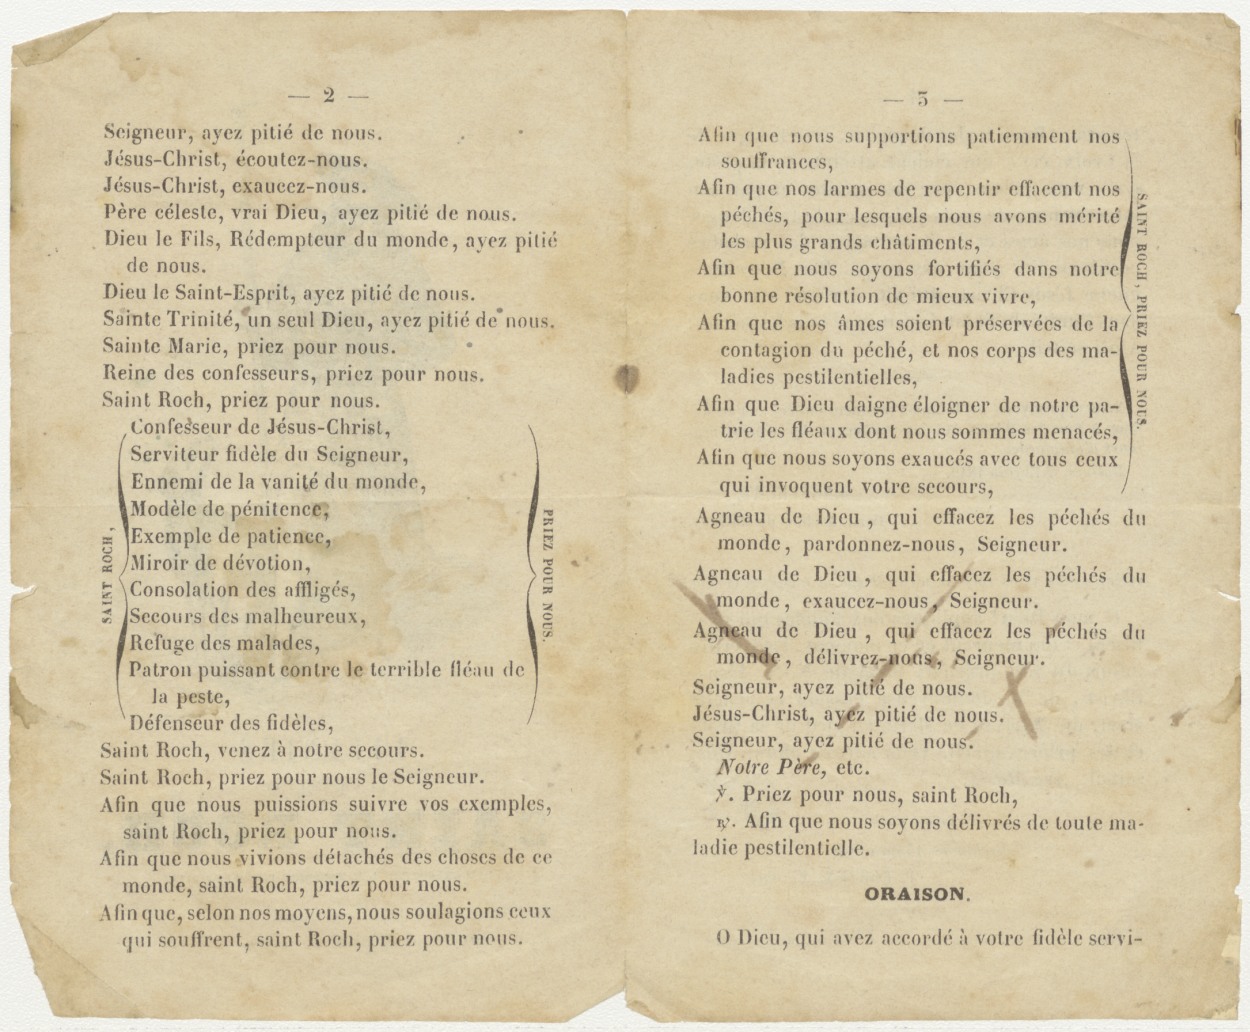 — 2 —
Seigneur, ayez pitié de nous.
Jésus-Christ, écoutez-nous.
Jésus-Christ, exaucez-nous.
Père céleste, vrai Dieu, ayez pitié de nous.
Dieu le Fils, Rédempteur du monde, ayez pitié
de nous.
Dieu le Saint-Esprit, ayez pitié de nous.
Sainte Trinité, un seul Dieu, ayez pitié de nous.
Sainte Marie, priez pour nous.
Reine des confesseurs, priez pour nous.
Saint Roch, priez pour nous.
SAINT ROCH,
Confesseur de Jésus-Christ,
Serviteur fidèle du Seigneur,
Ennemi de la vanité du monde,
Modèle de pénitence,
Exemple de patience,
Miroir de dévotion,
Consolation des affligés,
Secours des malheureux,
Refuge des malades,
Patron puissant contre le terrible fléau de
la peste,
Défenseur des fidèles,
PRIEZ POUR NOUS.
Saint Roch, venez à notre secours.
Saint Roch, priez pour nous le Seigneur.
Afin que nous puissions suivre vos exemples,
saint Roch, priez pour nous.
Afin que nous vivions détachés des choses de ce
monde, saint Roch, priez pour nous.
Afin que, selon nos moyens, nous soulagions ceux
qui souffrent, saint Roch, priez pour nous.
— 3 —
Afin que nous supportions patiemment nos
souffrances,
Afin que nos larmes de repentir effacent nos
péchés, pour lesquels nous avons mérité
les plus grands châtiments,
Afin que nous soyons fortifiés dans notre
bonne résolution de mieux vivre,
Afin que nos âmes soient préservées de la
contagion du péché, et nos corps des ma-
ladies pestilentielles,
Afin que Dieu daigne éloigner de notre pa-
trie les fléaux dont nous sommes menacés,
Afin que nous soyons exaucés avec tous ceux
qui invoquent votre secours,
SAINT ROCH, PRIEZ POUR NOUS.
Agneau de Dieu, qui effacez les péchés du
monde, pardonnez-nous, Seigneur.
Agneau de Dieu, qui effacez les péchés du
monde, exaucez-nous, Seigneur.
Agneau de Dieu, qui effacez les péchés du
monde, délivrez-nous, Seigneur.
Seigneur, ayez pitié de nous.
Jésus-Christ, ayez pitié de nous.
Seigneur, ayez pitié de nous.
Notre Père, etc.
℣. Priez pour nous, saint Roch,
℟. Afin que nous soyons délivrés de toute ma-
ladie pestilentielle.
ORAISON.
O Dieu, qui avez accordé à votre fidèle servi-